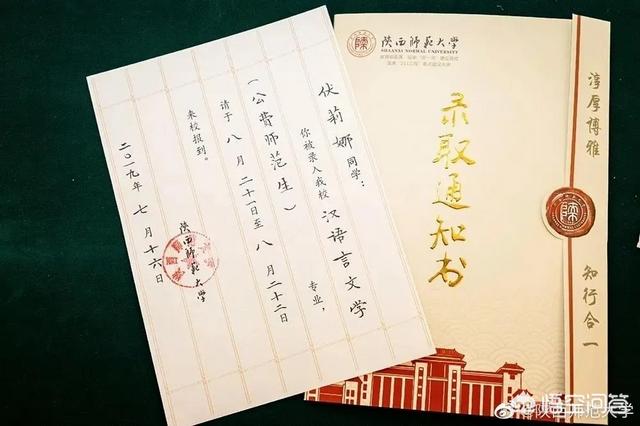 伏莉娜同学：
你被录入我校汉语言文学专业，
（公费师范生）
请于八月二十一日至八月二十二日
来校报到。
陕西师范大学
二〇一九年七月十六日
陕西师范大学
SHAANXI NORMAL UNIVERSITY
录取通知书
淳厚博雅
知行合一
悟空问答
@陕西师范大学